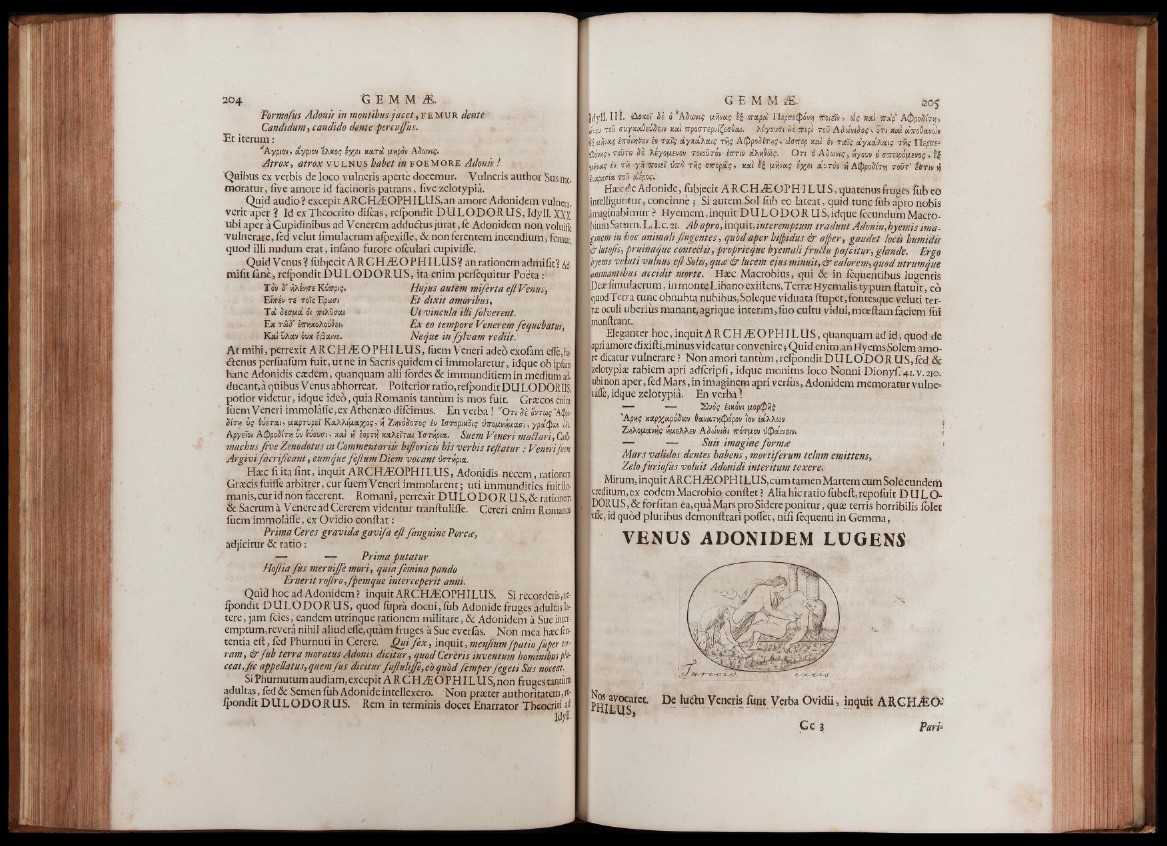 204 GEMMÆ.
Formosus Adonis in montibus jacet, FEMUR dente
Candidum, candido dente percussus.
Et iterum:
Ἄγριον, ἄγριον ἕλκος ἔχει κατὰ μηρὸν Ἄδωνις.
Atrox, atrox VULNUS habet in FOEMORE Adonis!
Quibus ex verbis de loco vulneris apertè docemur. Vulneris author Sus me-
moratur, sive amore id facinoris patrans, sive zelotypiâ.
Quid audio? excepit ARCHÆOPHILUS, an amore Adonidem vulnera-
verit aper? Id ex Theocrito discas, respondit DULODORUS, Idyll. XXX
ubi aper à Cupidinibus ad Venerem adductus jurat, se Adonidem non voluisse
vulnerare, sed velut simulacrum aspexisse, & non ferentem incendium, femur,
quod illi nudum erat, insano furore osculari cupivisse.
Quid Venus? subjecit ARCHÆOPHILUS? an rationem admisit? Ad-
misit sanè, respondit DULODORUS, ita enim persequitur Poëta:
Τὸν δ' ἠλέησε Κύπρις, Hujus autem miserta est Venus,
Εἶπέν τε τοῖς Ἔρωσι Et dixit amoribus,
Τὰ δεσμά οἱ 'πιλῦσαι Ut vincula illi solverent.
Ἐκ τῶδ' ἐπηκολούθει, Ex eo tempore Venerem sequebatur,
Καὶ ὕλαν οὐκ ἔβαινε. Neque in sylvam rediit.
At mihi, perrexit ARCHÆOPHILUS, suem Veneri adeò exosam esse, ha-
ctenus persuasum fuit, ut ne in Sacris quidem ei immolaretur, idque ob ipsam
hanc Adonidis cædem, quanquam alii sordes & immunditiem in medium ad-
ducant, à quibus Venus abhorreat. Posterior ratio, respondit DULODORUS,
potior videtur, idque ideò, quia Romanis tantùm is mos fuit. Græcos enim
suem Veneri immolâsse, ex Athenæo discimus. En verba! Ὅτι δὲ ὄντως Ἀφρο-
δίτῃ ὗς θύεται, μαρτυρεῖ Καλλίμαχος, ἢ Ζηνόδοτος ἐν Ἱστορικοῖς ὑπομνήμασι, γράφων
Ἀργεῖοι Ἀφροδίτῃ ὗν θύουσι, καὶ ἡ ἑορτὴ καλεῖται Ὑστήρια. Suem Veneri mactari, Calli-
machus sive Zenodotus in Commentariis historicis his verbis testatur: Veneri suem
Argivi sacrificant, eumque festum Diem vocant ὑστήρια.
Hæc si ita sint, inquit ARCHÆOPHILUS, Adonidis necem, rationem
Græcis fuisse arbitrer, cur suem Veneri immolarent; uti immundities fuit Ro-
manis, cur id non facerent. Romani, perrexit DULODORUS, & rationem
& Sacrum à Venere ad Cererem videntur transtulisse. Cereri enim Romanos
suem immolâsse, ex Ovidio constat:
Prima Ceres gravidæ gavisa est sanguine Porcæ,
adjicitur & ratio:
— — Prima putatur
Hostia sus meruisse mori, quia semina pando
Eruerit rostro, spemque interceperit anni.
Quid hoc ad Adonidem? inquit ARCHÆOPHILUS. Si recorderis, re-
spondit DULODORUS, quod suprà docui, sub Adonide fruges adultas la-
tere, jam scies, eandem utrinque rationem militare, & Adonidem à Sue inter-
emptum, reverâ nihil aliud esse, quàm fruges à Sue eversas. Non mea hæc sen-
tentia est, sed Phurnuti in Cerere. Qui sex, inquit, mensium spatio super ter-
ram, & sub terra moratus Adonis dicitur, quod Cereris inventum hominibus pla-
ceat, sic appellatus, quem sus dicitur sustulisse, eò quòd semper segeti Sus noceat.
Si Phurnutum audiam, excepit ARCHÆOPHILUS, non fruges tantùm
adultas, sed & Semen sub Adonide intellexero. Non præter authoritatem, re-
spondit DULODORUS. Rem in terminis docet Enarrator Theocriti ad
Idyll.
GEMMÆ. 205
Idyll. III. Δοκεῖ δὲ ὁ Ἄδωνις μῆνας ἓξ παρὰ Περσεφόνῃ ποιεῖν, ὡς καὶ παρ' Ἀφροδίτῃ,
ἄνευ τοῦ συγκαθεύδειν καὶ προστερπίζεσθαι. λέγουσι δὲ περὶ τοῦ Ἀδώνιδος, ὅτι καὶ ἀποθανὼν
ἓξ μῆνας ἐποίησεν ἐν ταῖς ἀγκάλαις τῆς Ἀφροδίτης, ὥσπερ καὶ ἐν ταῖς ἀγκάλαις τῆς Περσε-
φόνης, τοῦτο δὲ λέγομενον τοιοῦτόν ἐστιν ἀληθῶς. Ὅτι ὁ Ἄδωνις, ἤγουν ὁ σπειρόμενος, ἓξ
μῆνας ἐν τῇ γῇ ποιεῖ ὑπὸ τῆς σπορᾶς, καὶ ἓξ μῆνας ἔχει αὐτὸν ἡ Ἀφροδίτη τοῦτ' ἔστιν ἡ
εὐκρασία τοῦ ἀέρος.
Hæc de Adonide, subjecit ARCHÆOPHILUS, quatenus fruges sub eo
intelliguntur, concinnè; Si autem Sol sub eo lateat, quid tunc sub apro nobis
imaginabimur? Hyemem, inquit DULODORUS, idque secundum Macro-
bium Saturn. L. I. c. 21. Ab apro, inquit, interemptum tradunt Adonin, hyemis ima-
ginem in hoc animali fingentes, quòd aper hispidus & asper, gaudet locis humidis
& lutosis, pruinaque contectis, proprieque hyemali fructu pascitur, glande. Ergo
hyems veluti vulnus est Solis, quæ & lucem ejus minuit, & calorem, quod utrumque
animantibus accidit morte. Hæc Macrobius, qui & in sequentibus lugentis
Deæ simulacrum, in monte Libano existens, Terræ Hyemalis typum statuit, eò
quod Terra tunc obnubta nubibus, Soleque viduata stupet, fontesque veluti ter-
ræ oculi uberiùs manant, agrique interim, suo cultu vidui, mœstam faciem sui
monstrant.
Eleganter hoc, inquit ARCHÆOPHILUS, quanquam ad id, quod de
apri amore dixisti, minus videatur convenire; Quid enim, an Hyems Solem amo-
re dicatur vulnerare? Non amori tantùm, respondit DULODORUS, sed &
zelotypiæ rabiem apri adscripsi, idque monitus loco Nonni Dionys. 41. v. 210.
ubi non aper, sed Mars, in imaginem apri versus, Adonidem memoratur vulne-
râsse, idque zelotypiâ. En verba!
— — Συὸς εἰκόνι μορφῆς
Ἄρης καρχαρόδων θανατηφόρον ἰὸν ἰάλλων
Ζηλομανὴς ἤμελλεν Ἀδώνιδι πότμον ὑφαίνειν.
— — Suis imagine formæ
Mars validos dentes habens, mortiferum telum emittens,
Zelo furiosus voluit Adonidi interitum texere.
Mirum, inquit ARCHÆOPHILUS, cùm tamen Martem cum Sole eundem
creditum, ex eodem Macrobio constet? Alia hîc ratio subest, reposuit DULO-
DORUS, & forsitan ea, quâ Mars pro Sidere ponitur, quæ terris horribilis solet
esse, id quòd pluribus demonstrari posset, nisi sequenti in Gemma,
VENUS ADONIDEM LUGENS
Nos avocaret. De luctu Veneris sunt Verba Ovidii, inquit ARCHÆO-
PHILUS,
Cc 3 Pari-